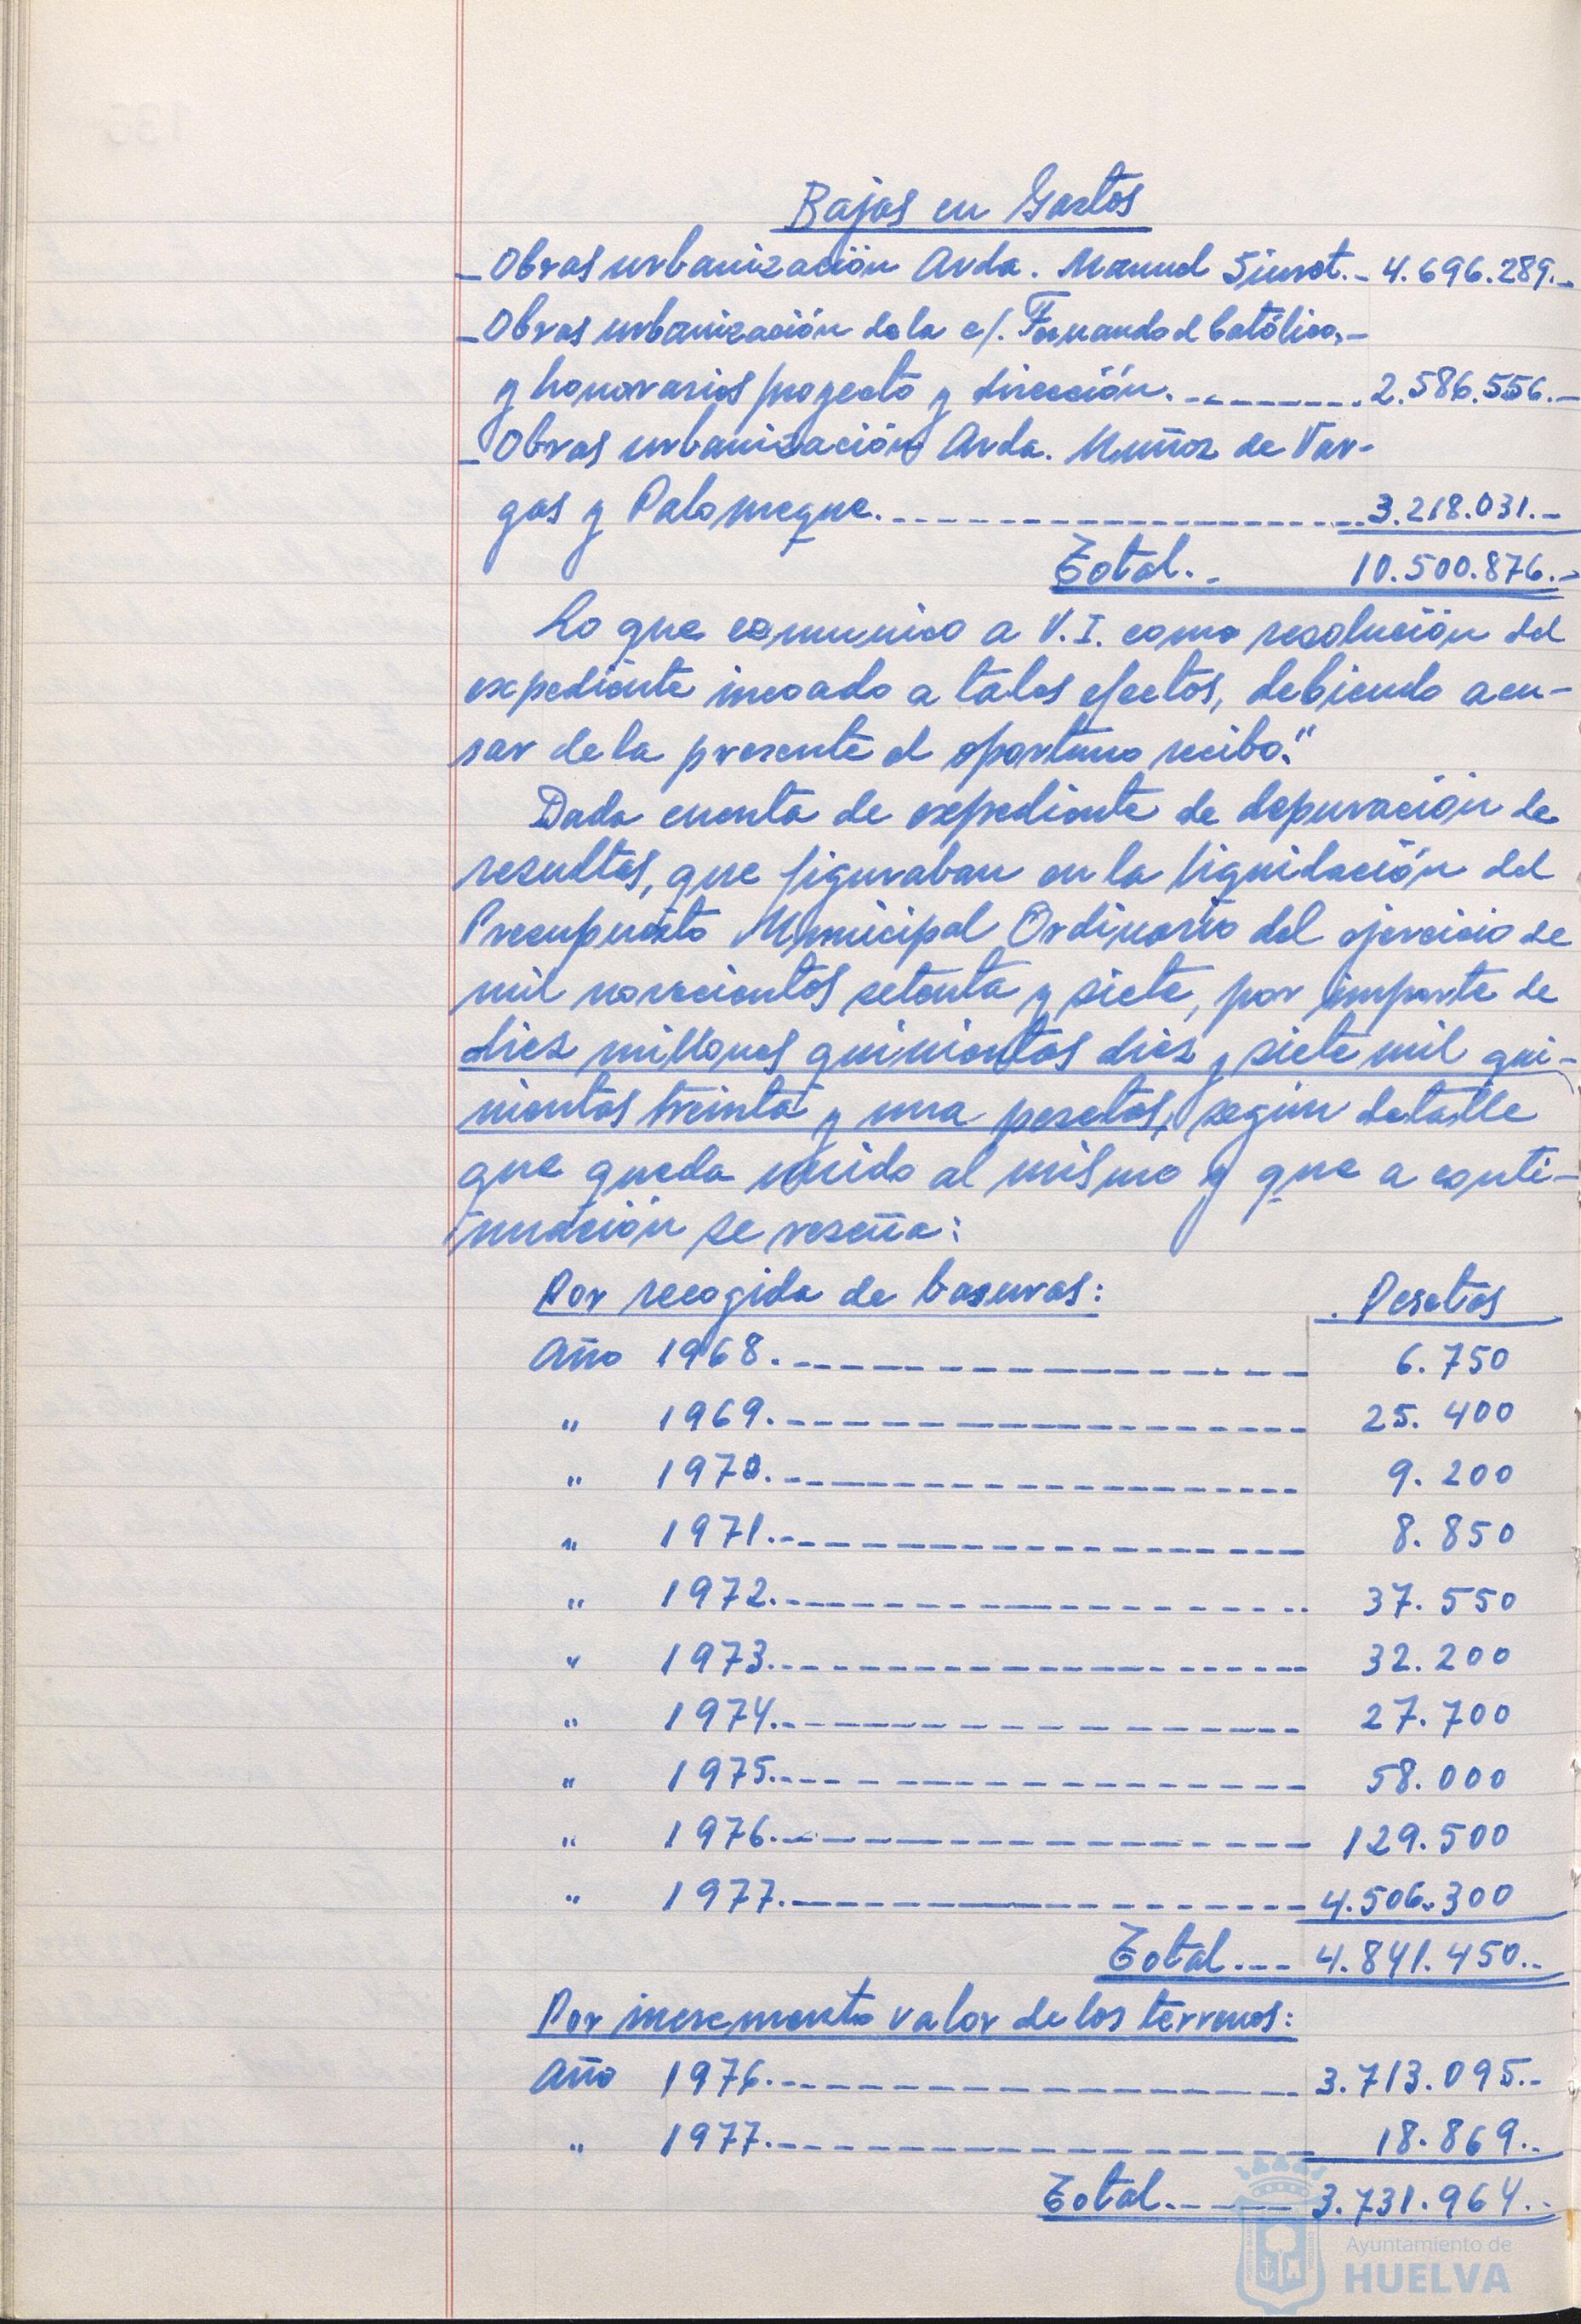 Bajas en Gastos
- Obras urbanización Avda. Manuel Siurot.- 4.696.289.-
- Obras urbanización de la c/. Fernando el Católico,-
y honorarios proyecto y dirección.-------- 2.586.556.-
- Obras urbanización Avda. Muñoz de Var-
gas y Palomeque.-------------------- 3.218.031.-
Total.- 10.500.876.-
Lo que comunico a V.I. como resolución del
expediente incoado a tales efectos, debiendo acu-
sar de la presente el oportuno recibo."
Dada cuenta de expediente de depuración de
resultas, que figuraban en la liquidación del
Presupuesto Municipal Ordinario del ejercicio de
mil novecientos setenta y siete, por importe de
diez millones quinientos diez y siete mil qui-
nientos treinta y una pesetas, según detalle
que queda unido al mismo y que a conti-
nuación se reseña:
Por recogida de basuras: Pesetas
Año 1968.------------------ 6.750
" 1969.------------------ 25.400
" 1970.------------------ 9.200
" 1971.------------------ 8.850
" 1972.------------------ 37.550
" 1973.------------------ 32.200
" 1974.------------------ 27.700
" 1975.------------------ 58.000
" 1976.------------------ 129.500
" 1977.------------------ 4.506.300
Total.--- 4.841.450.-
Por incremento valor de los terrenos:
Año 1976.------------------ 3.713.095.-
" 1977.------------------ 18.869.-
Total.----- 3.731.964.-
Ayuntamiento de
HUELVA